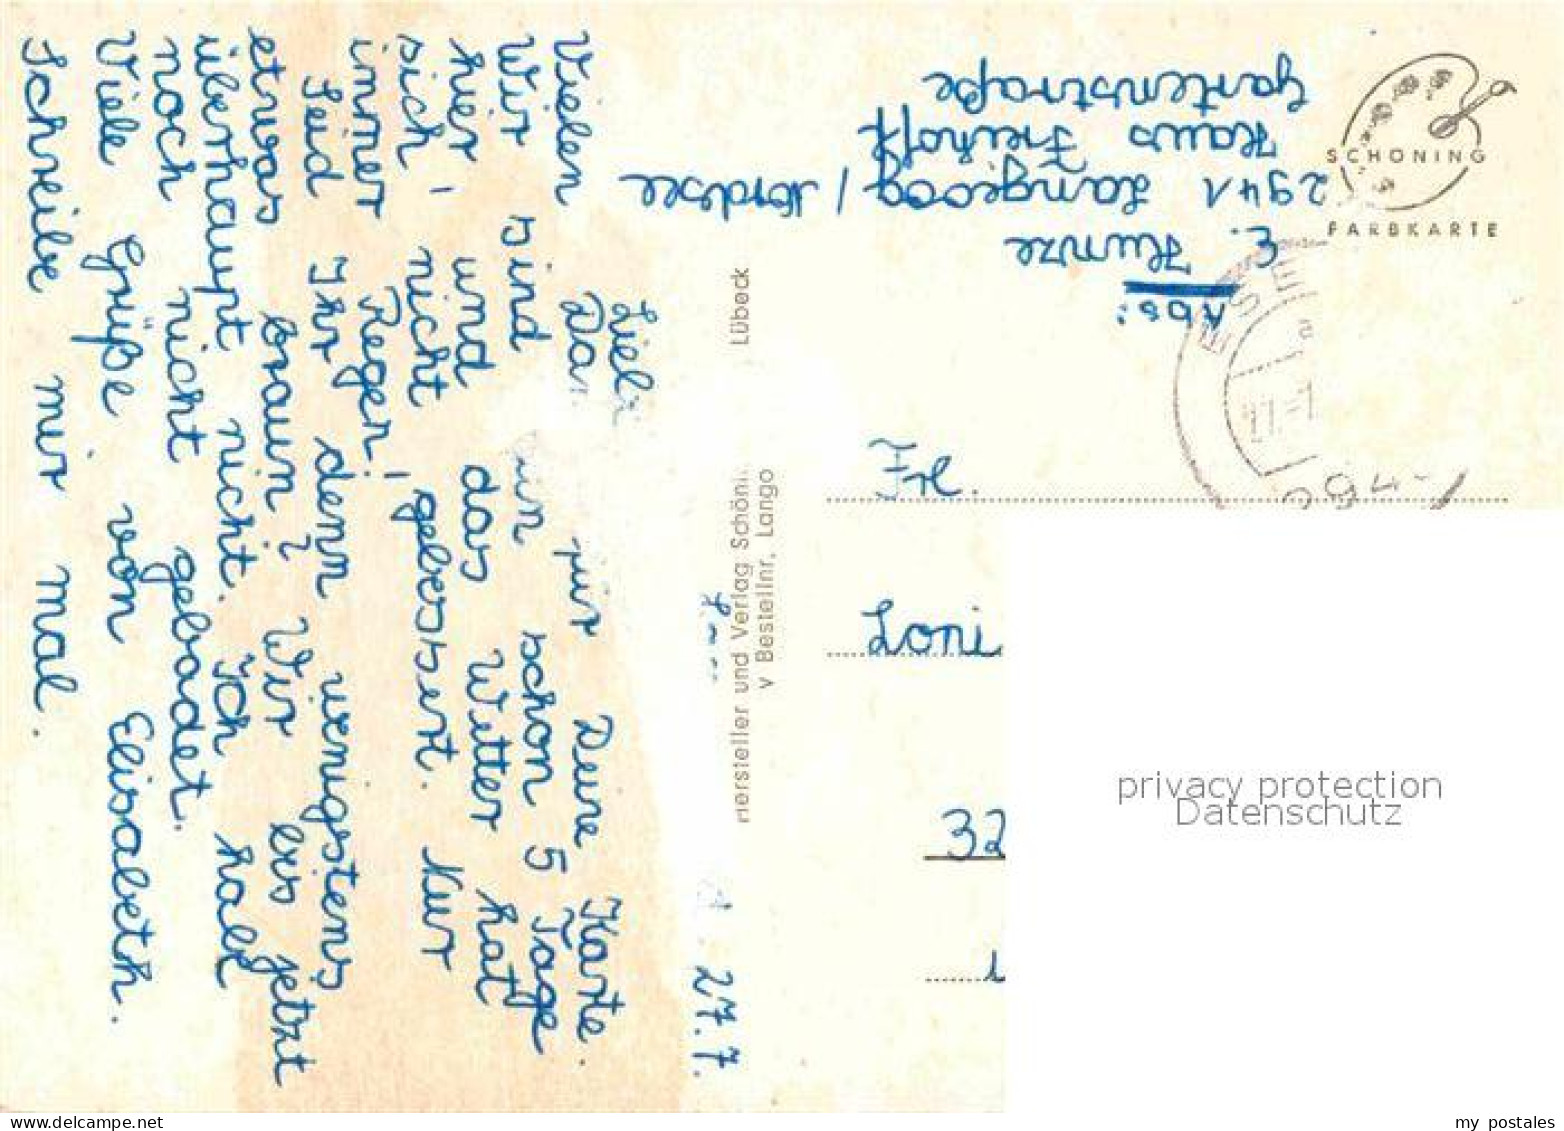 27.7.
Vielen Deine Karte.
Wir sind schon 5 Tage
hier, und das Wetter hat
sich nicht gebessert. Nur
immer Regen!
Seid Ihr denn wenigstens
etwas braun? Wir bis jetzt
überhaupt nicht. Ich hab
noch nicht gebadet.
Viele Grüße von Elisabeth.
Schreibe mir mal.
Abs:
E. Kunze
2941 Langeoog / Nordsee
Haus Freihoff
Gartenstraße
SCHÖNING
FARBKARTE
Hersteller und Verlag Lübeck
V Bestellnr. Lango
Frl.
Loni
32
privacy protection
Datenschutz
my postales